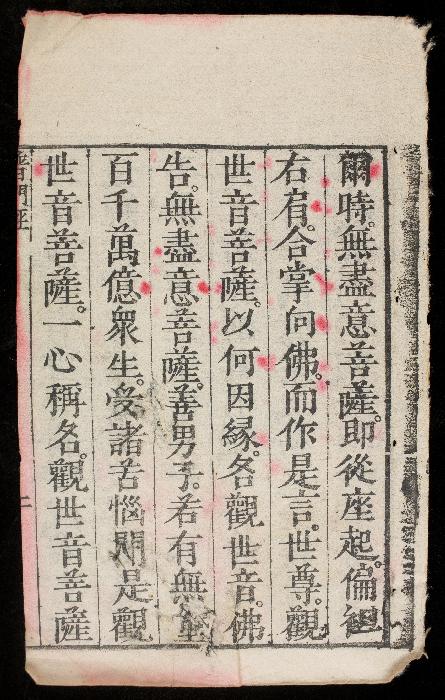 爾時。無盡意菩薩。即從座起。偏袒
右肩。合掌向佛。而作是言。世尊。觀
世音菩薩。以何因緣。名觀世音。佛
告。無盡意菩薩。善男子。若有無量
百千萬億衆生。受諸苦惱。聞是觀
世音菩薩。一心稱名。觀世音菩薩
普門經
二